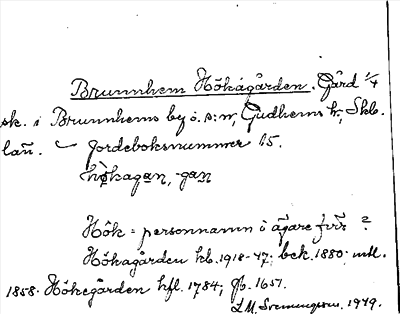 Brunnhem Hökagården. Gård 1/4
sk. i Brunnhems by o. s:n, Gudhems h., Skb.
län. — Jordeboksnummer 15.
hökagan, gan
Hök = personnamn å ägare förr?
Hökagården kb. 1918-47; bek. 1880; mtl.
1858. Hökegården hfl. 1784; jb. 1651.
1949.